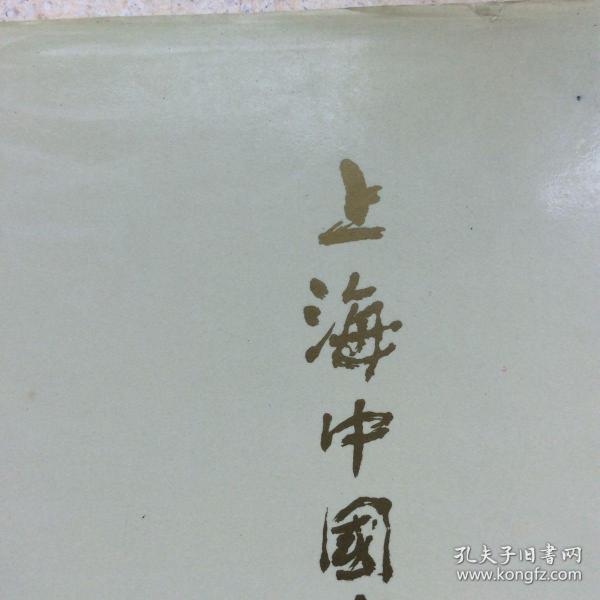 上海中國
孔夫子旧书网
www.kongfz.com